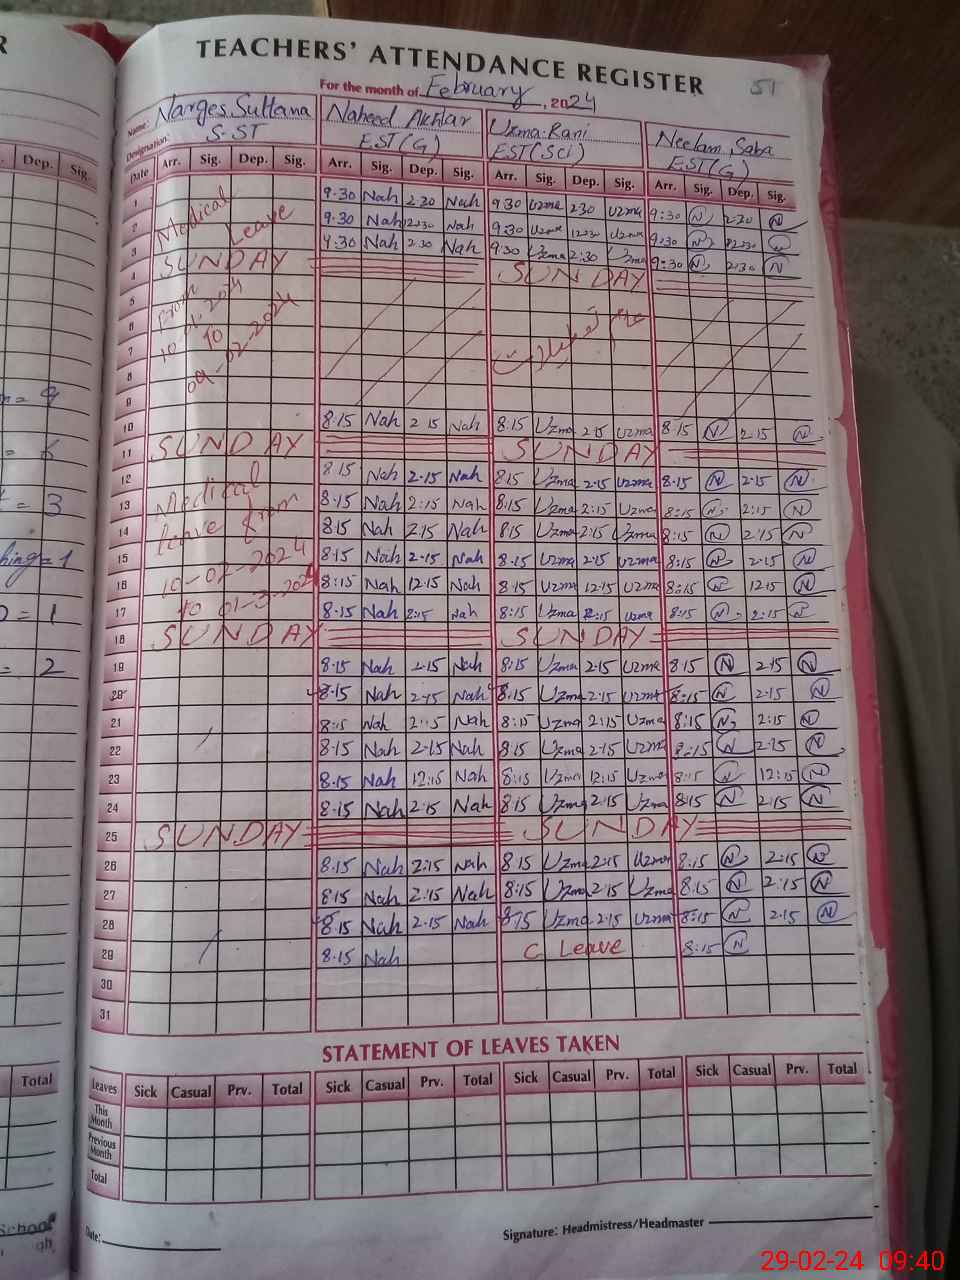 R
TEACHERS' ATTENDANCE REGISTER
51
For the month of February, 2024
Name: Narges Sultana Naheed Akhtar Uzma Rani Neelam Saba
Designation: S-ST EST(G) EST(Sci) EST(G)
Dep. Sig. Date Arr. Sig. Dep. Sig. Arr. Sig. Dep. Sig. Arr. Sig. Dep. Sig. Arr. Sig. Dep. Sig.
1 9.30 Nah 2.30 Nah 9.30 Uzma 2.30 Uzma 9:30 N 2.30 N
2 Medical Leave 9.30 Nah 12.30 Nah 9.30 Uzma 12.30 Uzma 9:30 N 12.30
3 9.30 Nah 2.30 Nah 9.30 Uzma 2.30 Uzma 9:30 N 2.30 N
4 SUNDAY SUNDAY
5 From
6 10-01-2024
7 To
8 09-02-2024
9
10 8.15 Nah 2.15 Nah 8.15 Uzma 2.15 Uzma 8.15 N 2.15 N
11 SUNDAY SUNDAY
12 8.15 Nah 2.15 Nah 8.15 Uzma 2.15 Uzma 8.15 N 2.15 N
13 Medical 8.15 Nah 2:15 Nah 8.15 Uzma 2:15 Uzma 8:15 N 2:15 N
14 Leave from 8.15 Nah 2.15 Nah 8.15 Uzma 2.15 Uzma 8:15 N 2.15 N
15 10-02-2024 8.15 Nah 2.15 Nah 8.15 Uzma 2.15 Uzma 8:15 N 2.15 N
16 8:15 Nah 12.15 Nah 8.15 Uzma 12.15 Uzma 8:15 N 12.15 N
17 to 01-3-2024 8.15 Nah 2:15 Nah 8:15 Uzma 2:15 Uzma 8:15 N 2:15 N
18 SUNDAY SUNDAY
19 8.15 Nah 2.15 Nah 8:15 Uzma 2.15 Uzma 8.15 N 2.15 N
20 8.15 Nah 2.15 Nah 8.15 Uzma 2.15 Uzma 8:15 N 2.15 N
21 8:15 Nah 2:15 Nah 8:15 Uzma 2:15 Uzma 8:15 N 2:15 N
22 8.15 Nah 2.15 Nah 8.15 Uzma 2.15 Uzma 8:15 N 2.15 N
23 8.15 Nah 12:15 Nah 8:15 Uzma 12:15 Uzma 8:15 N 12:15 N
24 8.15 Nah 2.15 Nah 8.15 Uzma 2.15 Uzma 8.15 N 2.15 N
25 SUNDAY SUNDAY
26 8.15 Nah 2:15 Nah 8.15 Uzma 2:15 Uzma 8:15 N 2:15 N
27 8.15 Nah 2.15 Nah 8.15 Uzma 2.15 Uzma 8.15 N 2:15 N
28 8.15 Nah 2.15 Nah 8.15 Uzma 2.15 Uzma 8:15 N 2.15 N
29 8.15 Nah C Leave 8:15 N
30
31
STATEMENT OF LEAVES TAKEN
Total Leaves Sick Casual Prv. Total Sick Casual Prv. Total Sick Casual Prv. Total Sick Casual Prv. Total
This Month
Previous Month
Total
Date: Signature: Headmistress/Headmaster
School
29-02-24 09:40